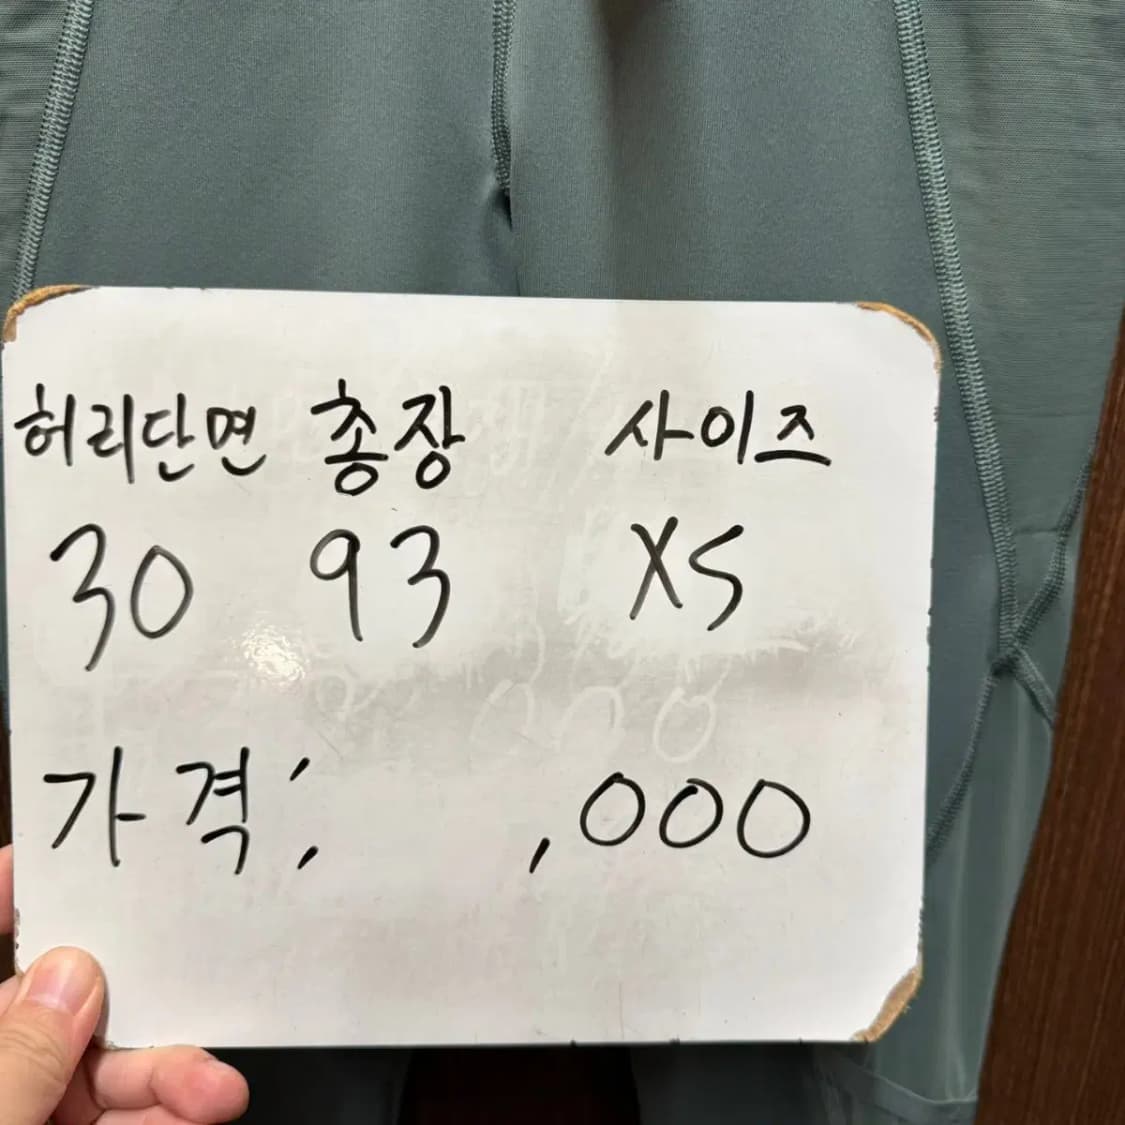 허리단면 총장 사이즈
30 93 XS
가격: ,000